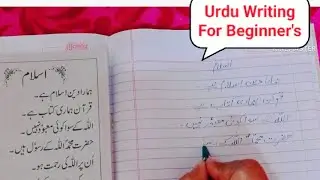 Urdu Writing
For Beginner's
اسلام
ہمارا دین اسلام ہے۔
قرآن ہماری کتاب ہے۔
اللہ کے سوا کوئی معبود نہیں۔
حضرت محمدؐ اللہ کے رسول ہیں۔
اُن پر اللہ کی رحمت ہو۔
اسلام
ہمارا دین اسلام ہے
قرآن ہماری کتاب ہے
اللہ کے سوا کوئی معبود نہیں
حضرت محمدؐ اللہ کے